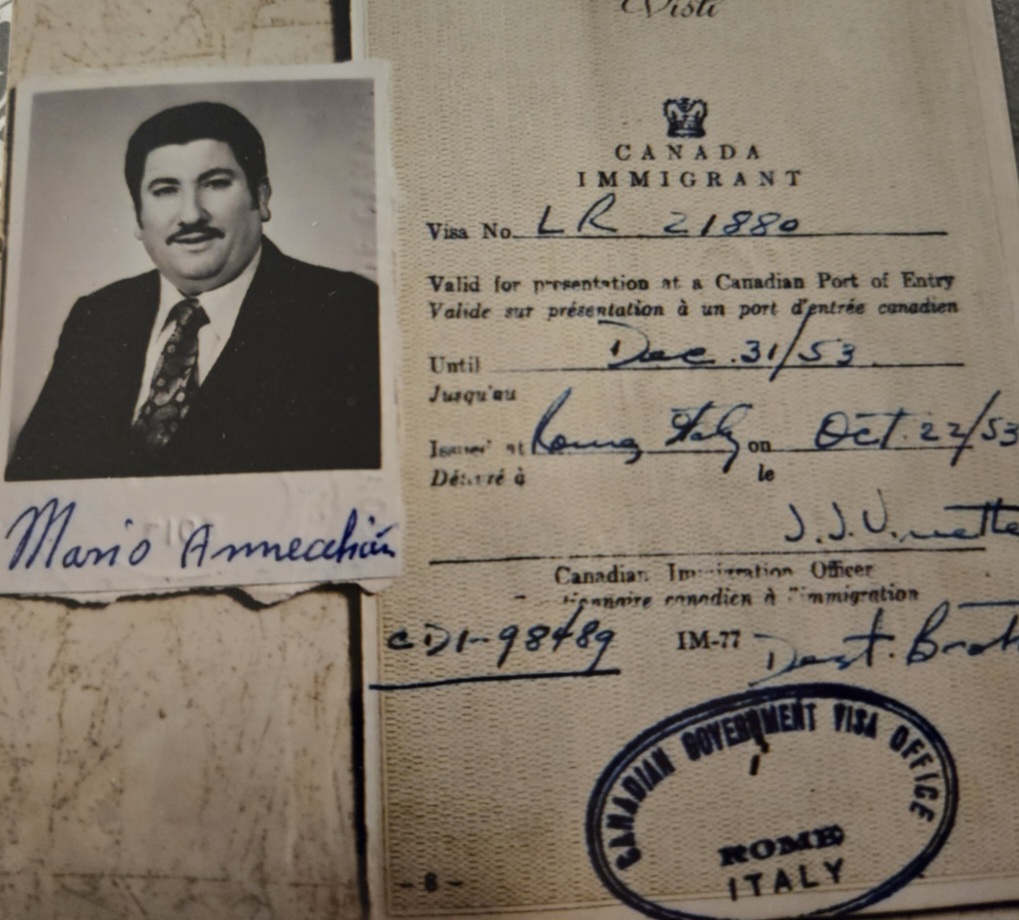 Visti
CANADA
IMMIGRANT
Visa No. LR 21880
Valid for presentation at a Canadian Port of Entry
Valide sur présentation à un port d'entrée canadien
Until Dec. 31/53
Jusqu'au
Issued at Rome Italy on Oct. 22/53
Délivré à le
J.J.
Canadian Immigration Officer
canadien à l'immigration
IM-77 Dest.
CANADIAN GOVERNMENT VISA OFFICE
ROME
ITALY
- 8 -
Mario